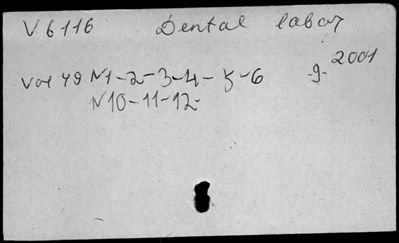 V 6116 Dental labor
Vol 49 N1-2-3-4-5-6 -9- 2001
N10-11-12-